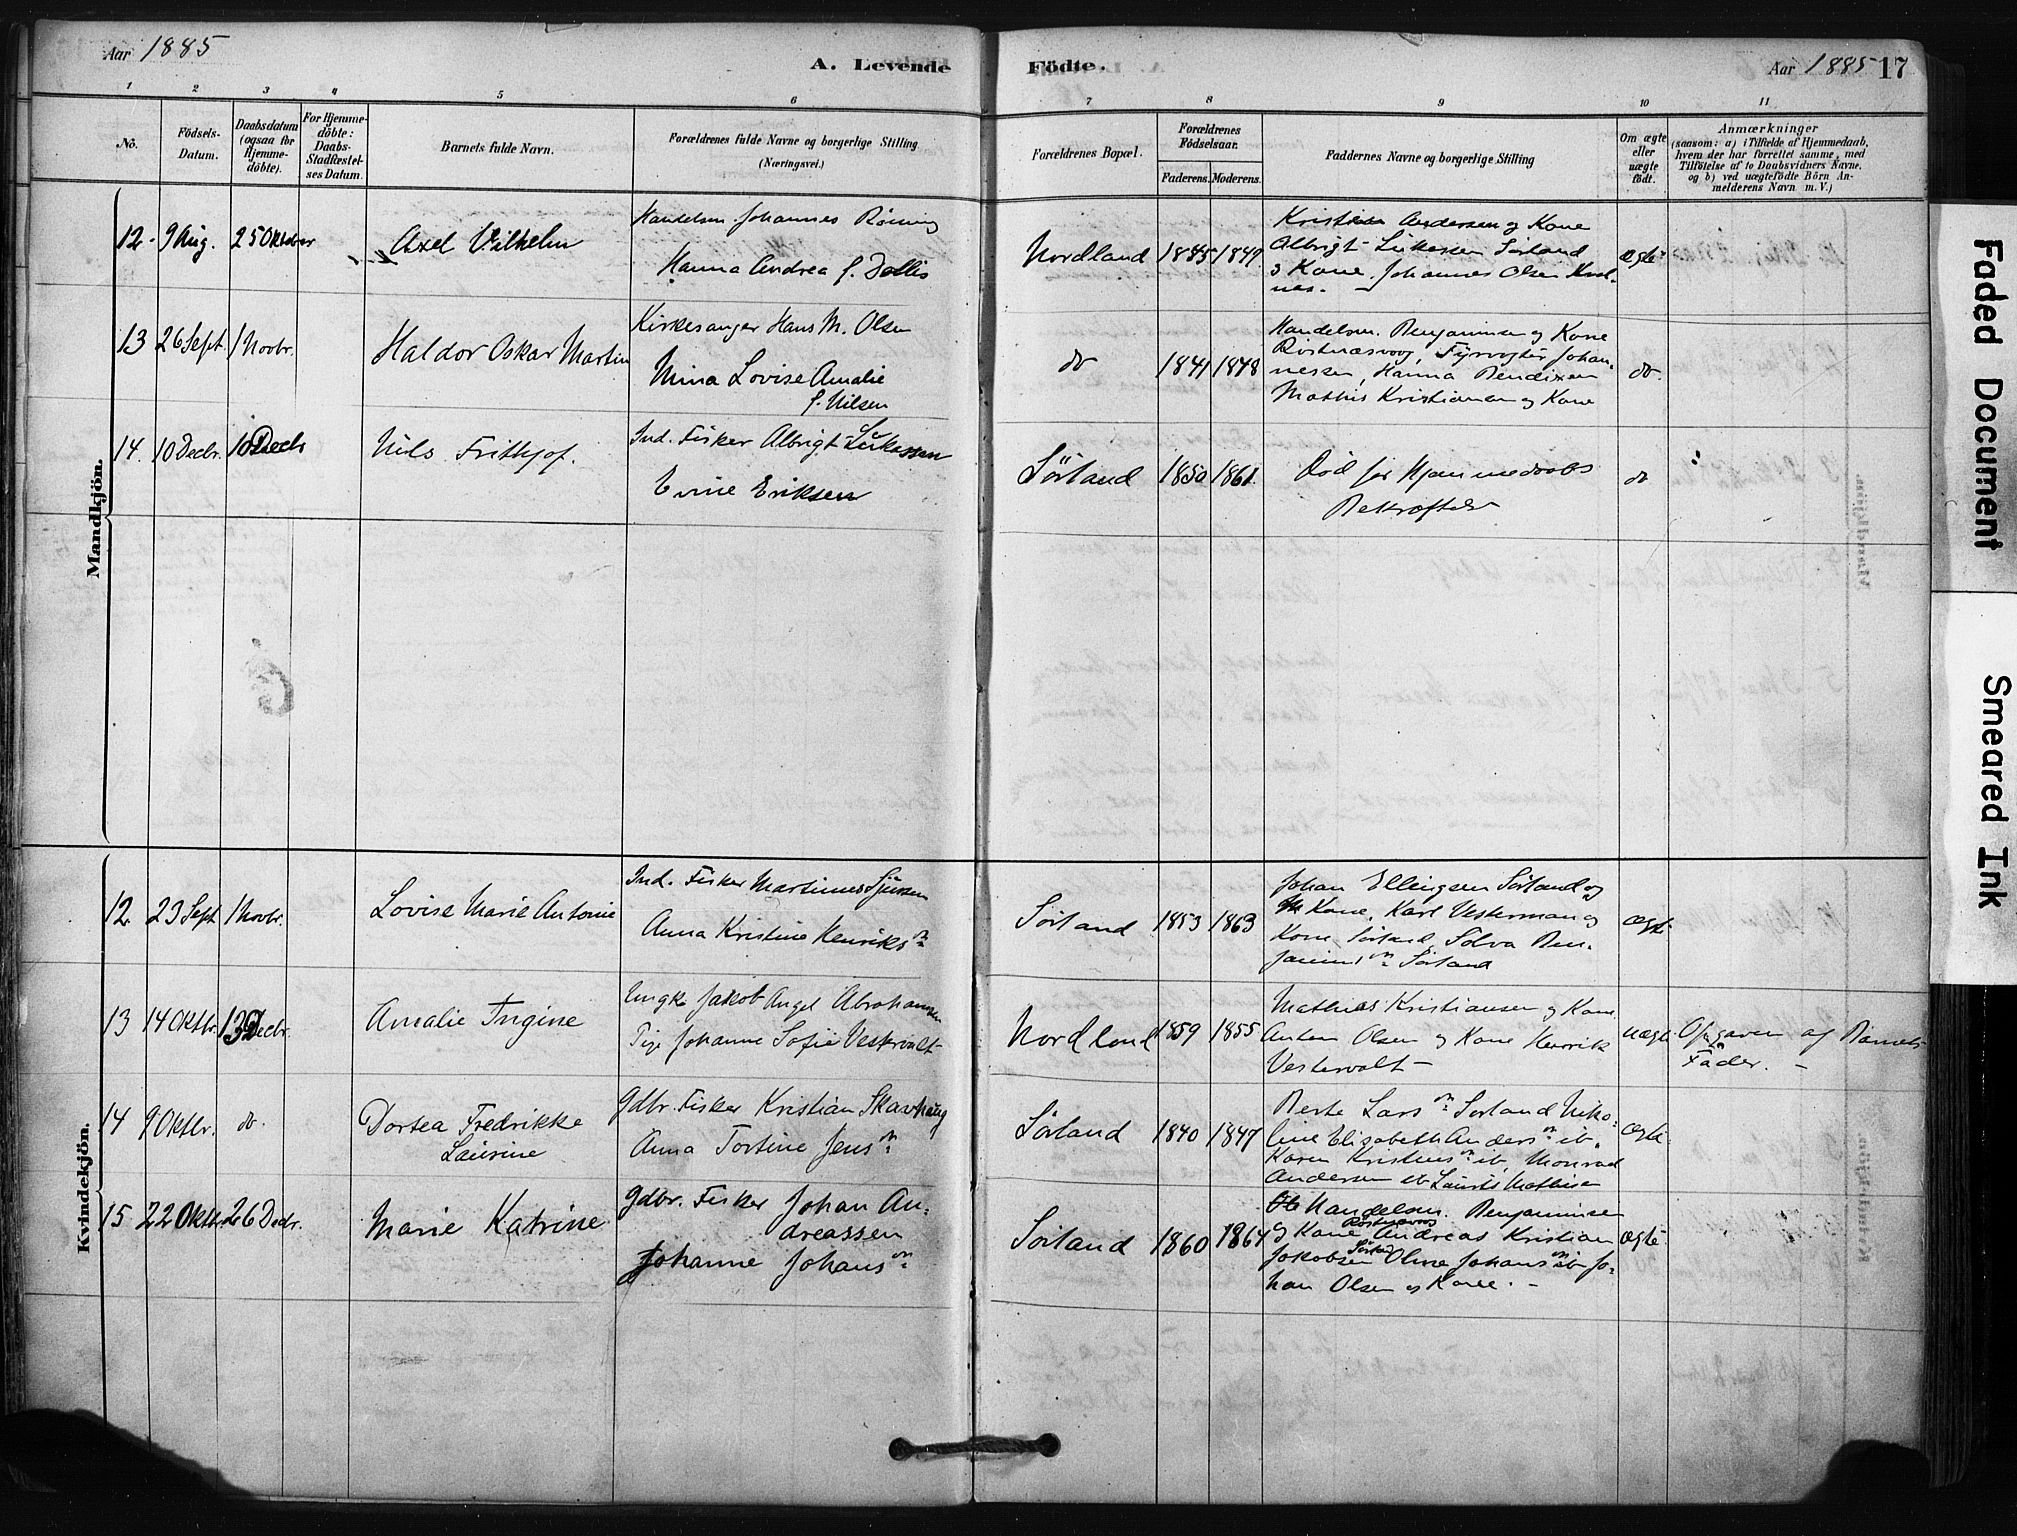 Aar 1885
A. Levende
Födte.
Aar 1885 17
1 2 3 4 5 6 7 8 9 10 11
No.
Födsels-
Datum.
Daabsdatum
(ogsaa for
Hjemme-
döbte).
For Hjemme-
döbte:
Daabs-
Stadfæstel-
ses Datum.
Barnets fulde Navn.
Forældrenes fulde Navne og borgerlige Stilling
(Næringsvei.)
Forældrenes Bopæl.
Forældrenes
Födselsaar.
Faderens. Moderens.
Faddernes Navne og borgerlige Stilling
Om ægte
eller
uægte
födt.
Anmærkninger
(saasom: a) i Tilfælde af Hjemmedaab,
hvem der har forrettet samme, med
Tilföielse af to Daabsvidners Navne,
og b) ved uægtefödte Börn An-
melderens Navn m. V.)
Mandkjön.
12. 9 Aug. 25 Oktober
Axel Vilhelm
Handelsm. Johannes Rönning
Hanna Andrea f. Dollis
Nordland 1845 1849
Kristian Andersen og Kone
Albrigt Lukassen Sörland
o Kone, Johannes Olsen
nes.
ægte
13 26 Sept. 1 Novbr.
Haldor Oskar Martin
Kirkesanger Hans M. Olsen
Mina Lovise Amalie
f. Nilsen
do 1841 1848
Handelsm. Benjaminsen og Kone
Röstnæsvaag, Fyrvogter Johan-
nessen, Hanna Bendixen
Mathis Kristiansen og Kone
do.
14. 10 Decbr. 10 Decbr
Nils Frithjof.
Ind. Fisker Albrigt Lukassen
Evine Eriksen
Sörland 1850 1861
Död för Hjemmedaabs
Bekræftelse
do
Kvindekjön.
12. 23 Sept 1 Novbr.
Lovise Marie Antonie
Ind. Fisker Martinus
Anna Kristine Henriksn
Sörland 1853 1863
Johan Ellingsen Sörland og
Kone, Karl Vesterman og
Kone Sörland, Solva Ben-
jaminsn Sörland
ægte
13 14 Oktbr. 13 Decbr.
Amalie Ingine
Ungk. Jakob Angel Abrahamsen
Pige Johanne Sofie Vestervalt
Nordland 1859 1855
Mathias Kristiansen og Kone
Anton Olsen og Kone Henrik
Vestervalt
uægte
Opgaven af Barnets
Fader.
14 9 Oktbr. do.
Dortea Fredrikke
Laurine
Gdbr. Fisker Kristian Skavhaug
Anna Tortine Jensn
Sörland 1840 1847
Berte Larsn Sörland Niko-
line Elisabeth Andersn ib.
Karen Kristensn ib, Monrad
Andersen ib Laurits Mathisen
ægte
15 22 Oktbr. 26 Decbr.
Marie Katrine
Gdbr. Fisker Johan An-
dreassen
Johanne Johansn
Sörland 1860 1864
Handelsm. Benjaminsen
Röstnæsvaag
og Kone Andreas Kristian
Jakobsen Oline Johansn ib Jo-
han Olsen og Kone.
ægte
Faded Document
Smeared Ink